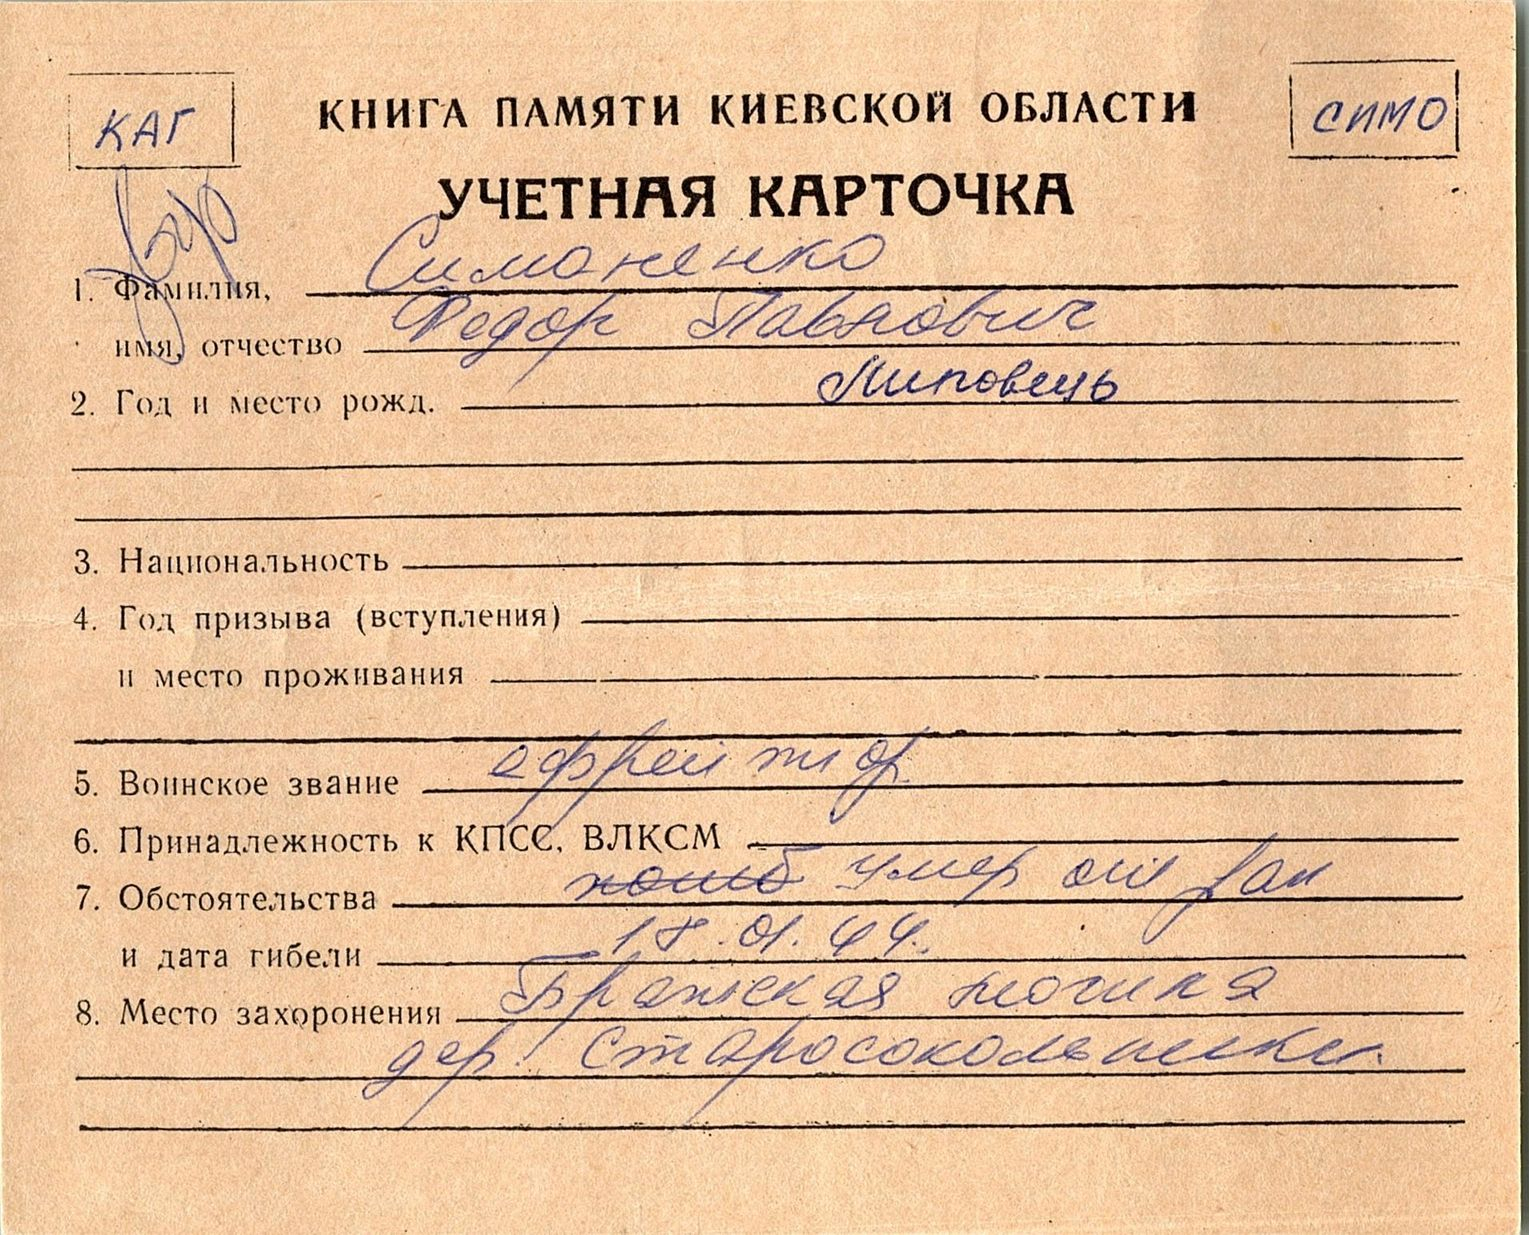 КАГ
КНИГА ПАМЯТИ КИЕВСКОЙ ОБЛАСТИ
СИМО
УЧЕТНАЯ КАРТОЧКА
1. Фамилия, Симоненко
имя, отчество Федор Павлович
2. Год и место рожд. Липовець
3. Национальность
4. Год призыва (вступления)
и место проживания
5. Воинское звание ефрейтор
6. Принадлежность к КПСС, ВЛКСМ
7. Обстоятельства погиб умер от ран
и дата гибели 18.01.44.
8. Место захоронения Братская могила
дер. Старосокольники.